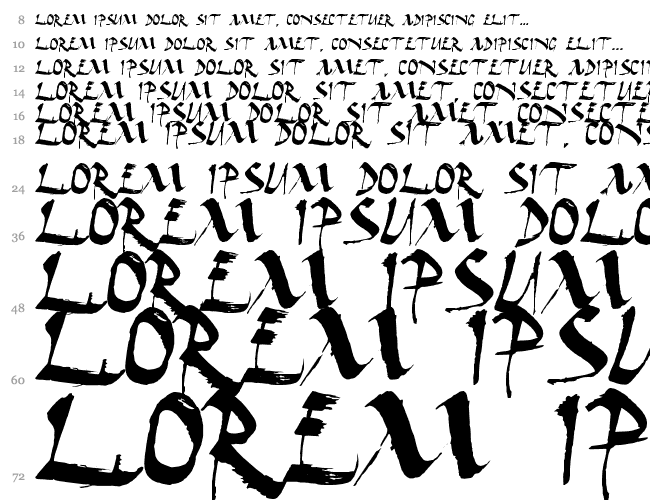 8 LOREM IPSUM DOLOR SIT AMET, CONSECTETUER ADIPISCING ELIT...
10 LOREM IPSUM DOLOR SIT AMET, CONSECTETUER ADIPISCING ELIT...
12 LOREM IPSUM DOLOR SIT AMET, CONSECTETUER ADIPISCIN
14 LOREM IPSUM DOLOR SIT AMET, CONSECTETUER
16 LOREM IPSUM DOLOR SIT AMET, CONSECTE
18 LOREM IPSUM DOLOR SIT AMET, CONS
24 LOREM IPSUM DOLOR SIT AM
36 LOREM IPSUM DOLO
48 LOREM IPSUM
60 LOREM IPSU
72 LOREM IP